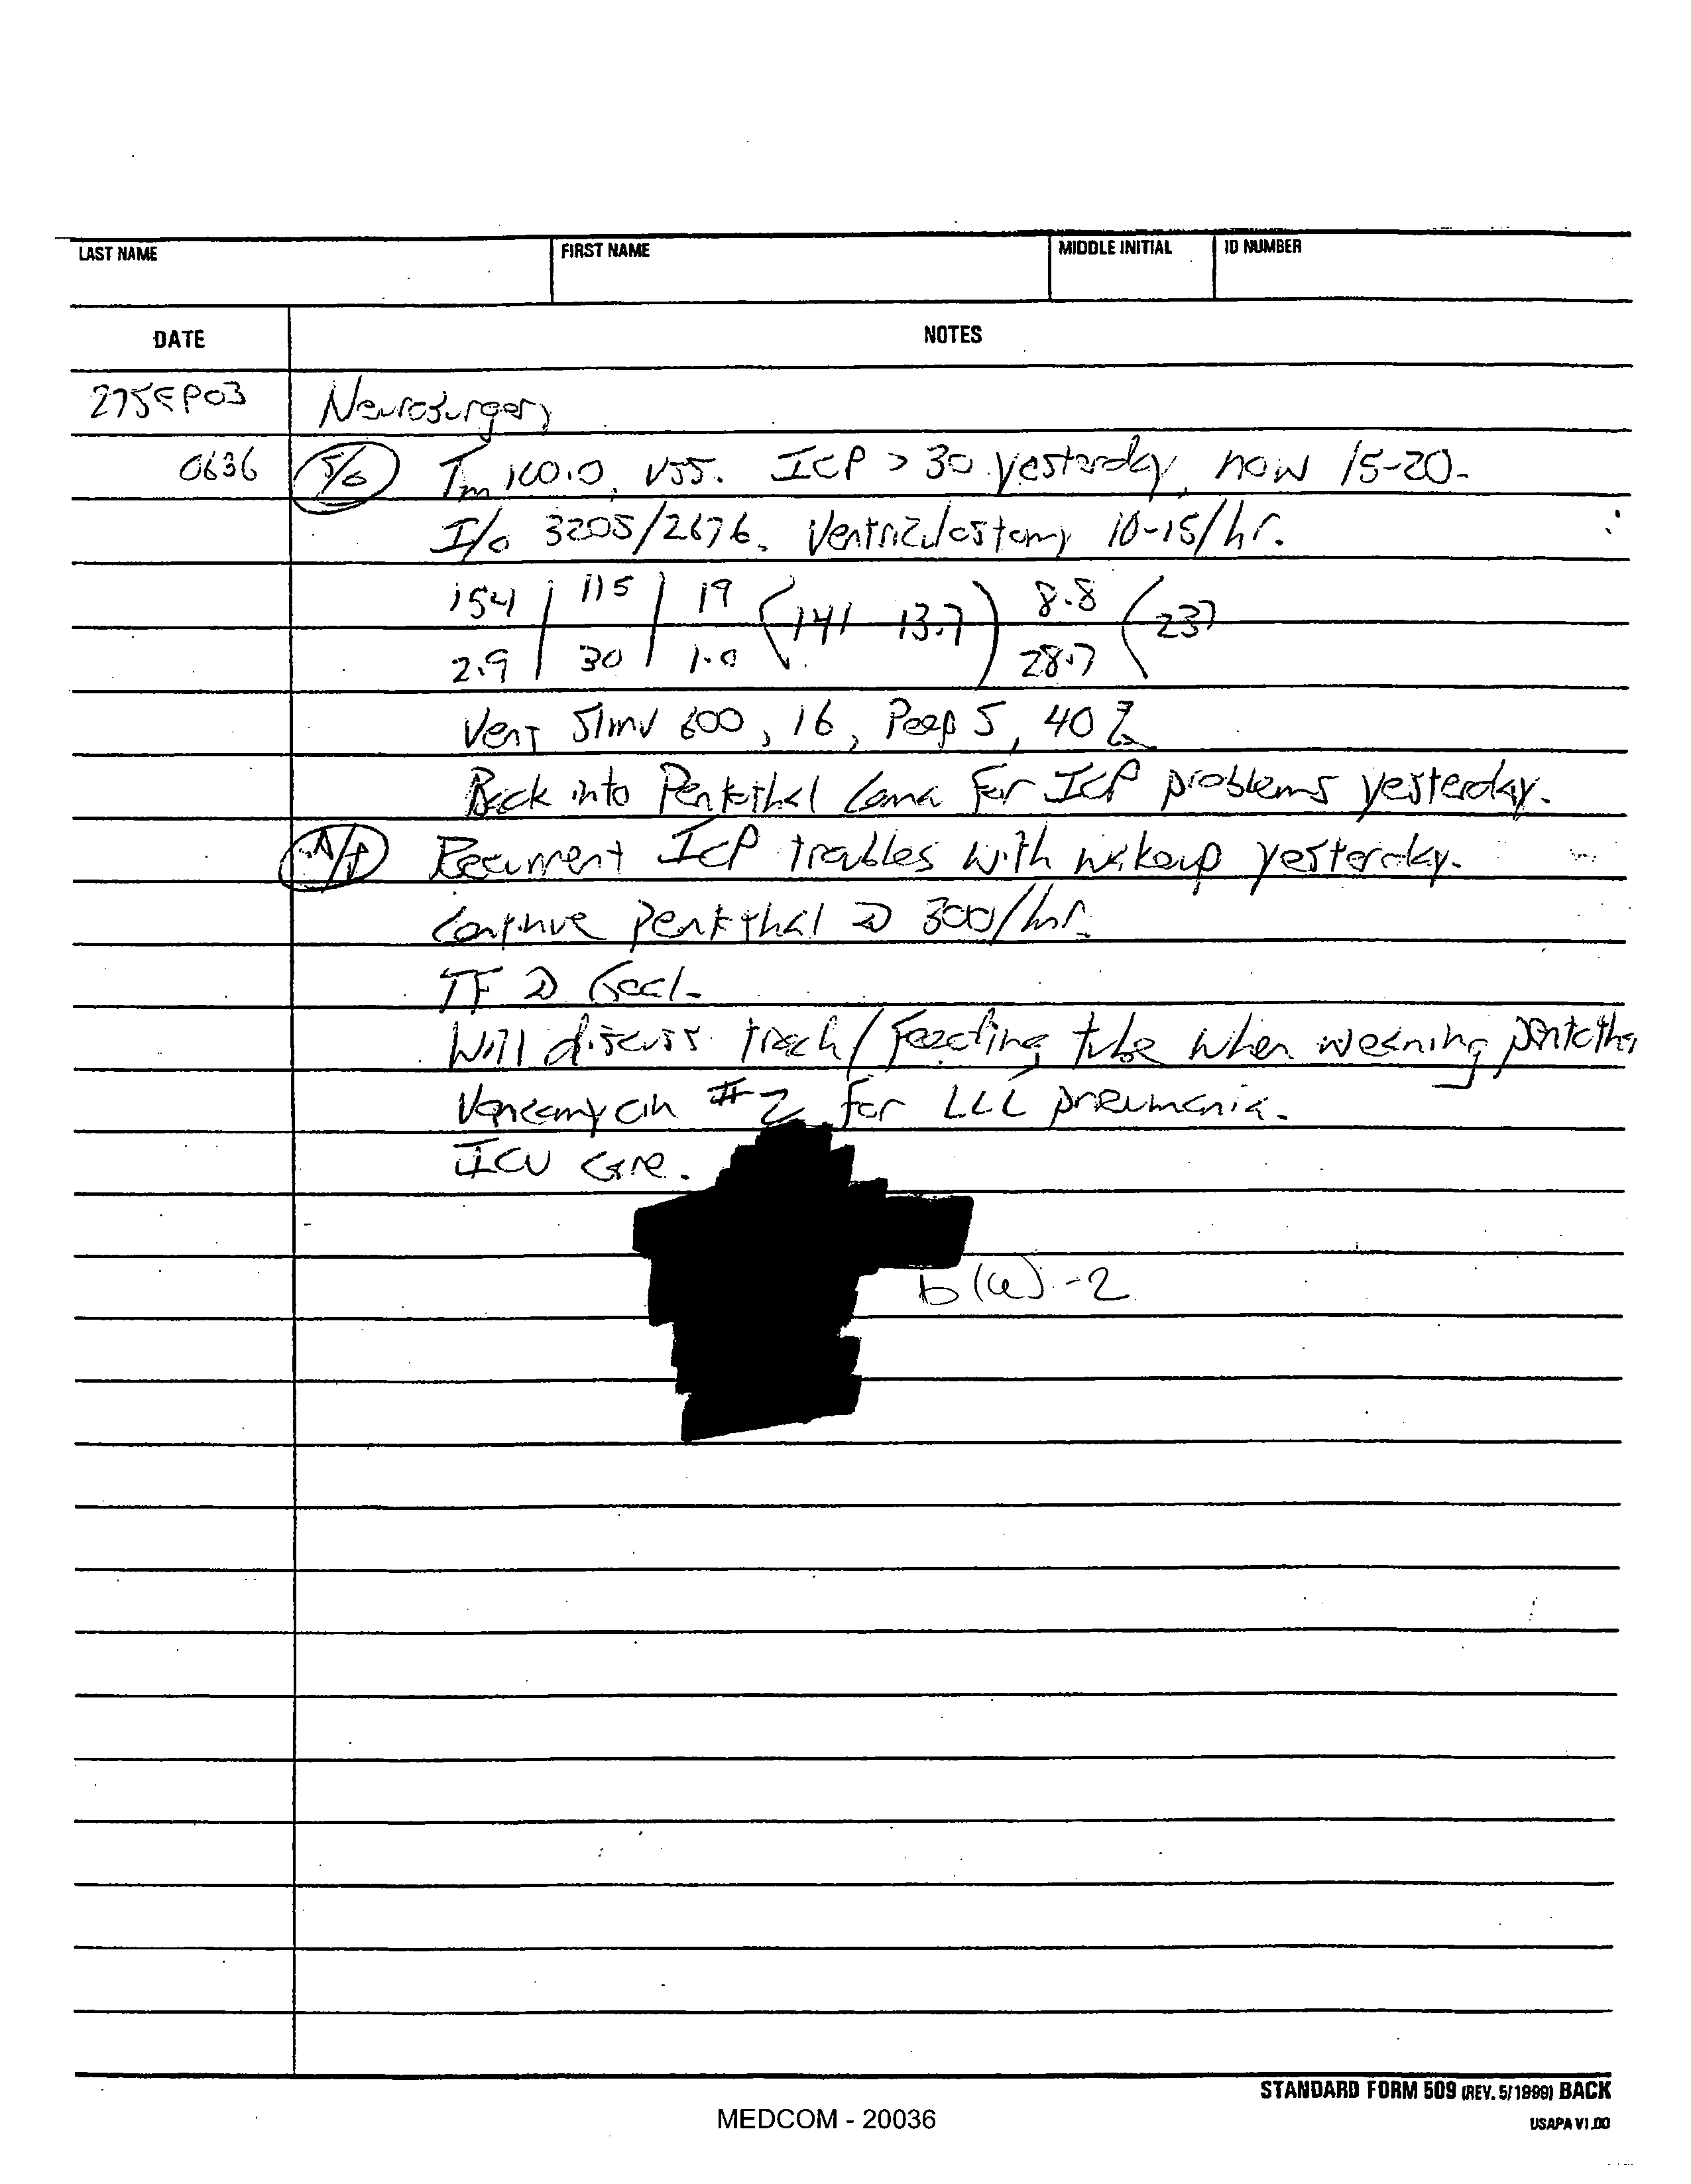 LAST NAME FIRST NAME MIDDLE INITIAL ID NUMBER
DATE NOTES
27SEP03 Neurosurgery
0636 S/O Tm 100.0, VSS. ICP > 30 yesterday, now 15-20.
I/O 3205/2676. Ventriculostomy 10-15/hr.
154 | 115 | 19 < 141 13.7 ) 8.8 ( 237
2.9 | 30 | 1.0 28.7
Vent SIMV 600, 16, Peep 5, 40%
Back into Pentothal Coma for ICP problems yesterday.
A/P Recurrent ICP troubles with wakeup yesterday.
Continue pentothal @ 300/hr.
TF @ Goal.
Will discuss trach/feeding tube when weaning pentothal
Vancomycin #2 for LLL pneumonia.
ICU care.
b(6)-2
STANDARD FORM 509 (REV. 5/1999) BACK
MEDCOM - 20036
USAPA V1.00